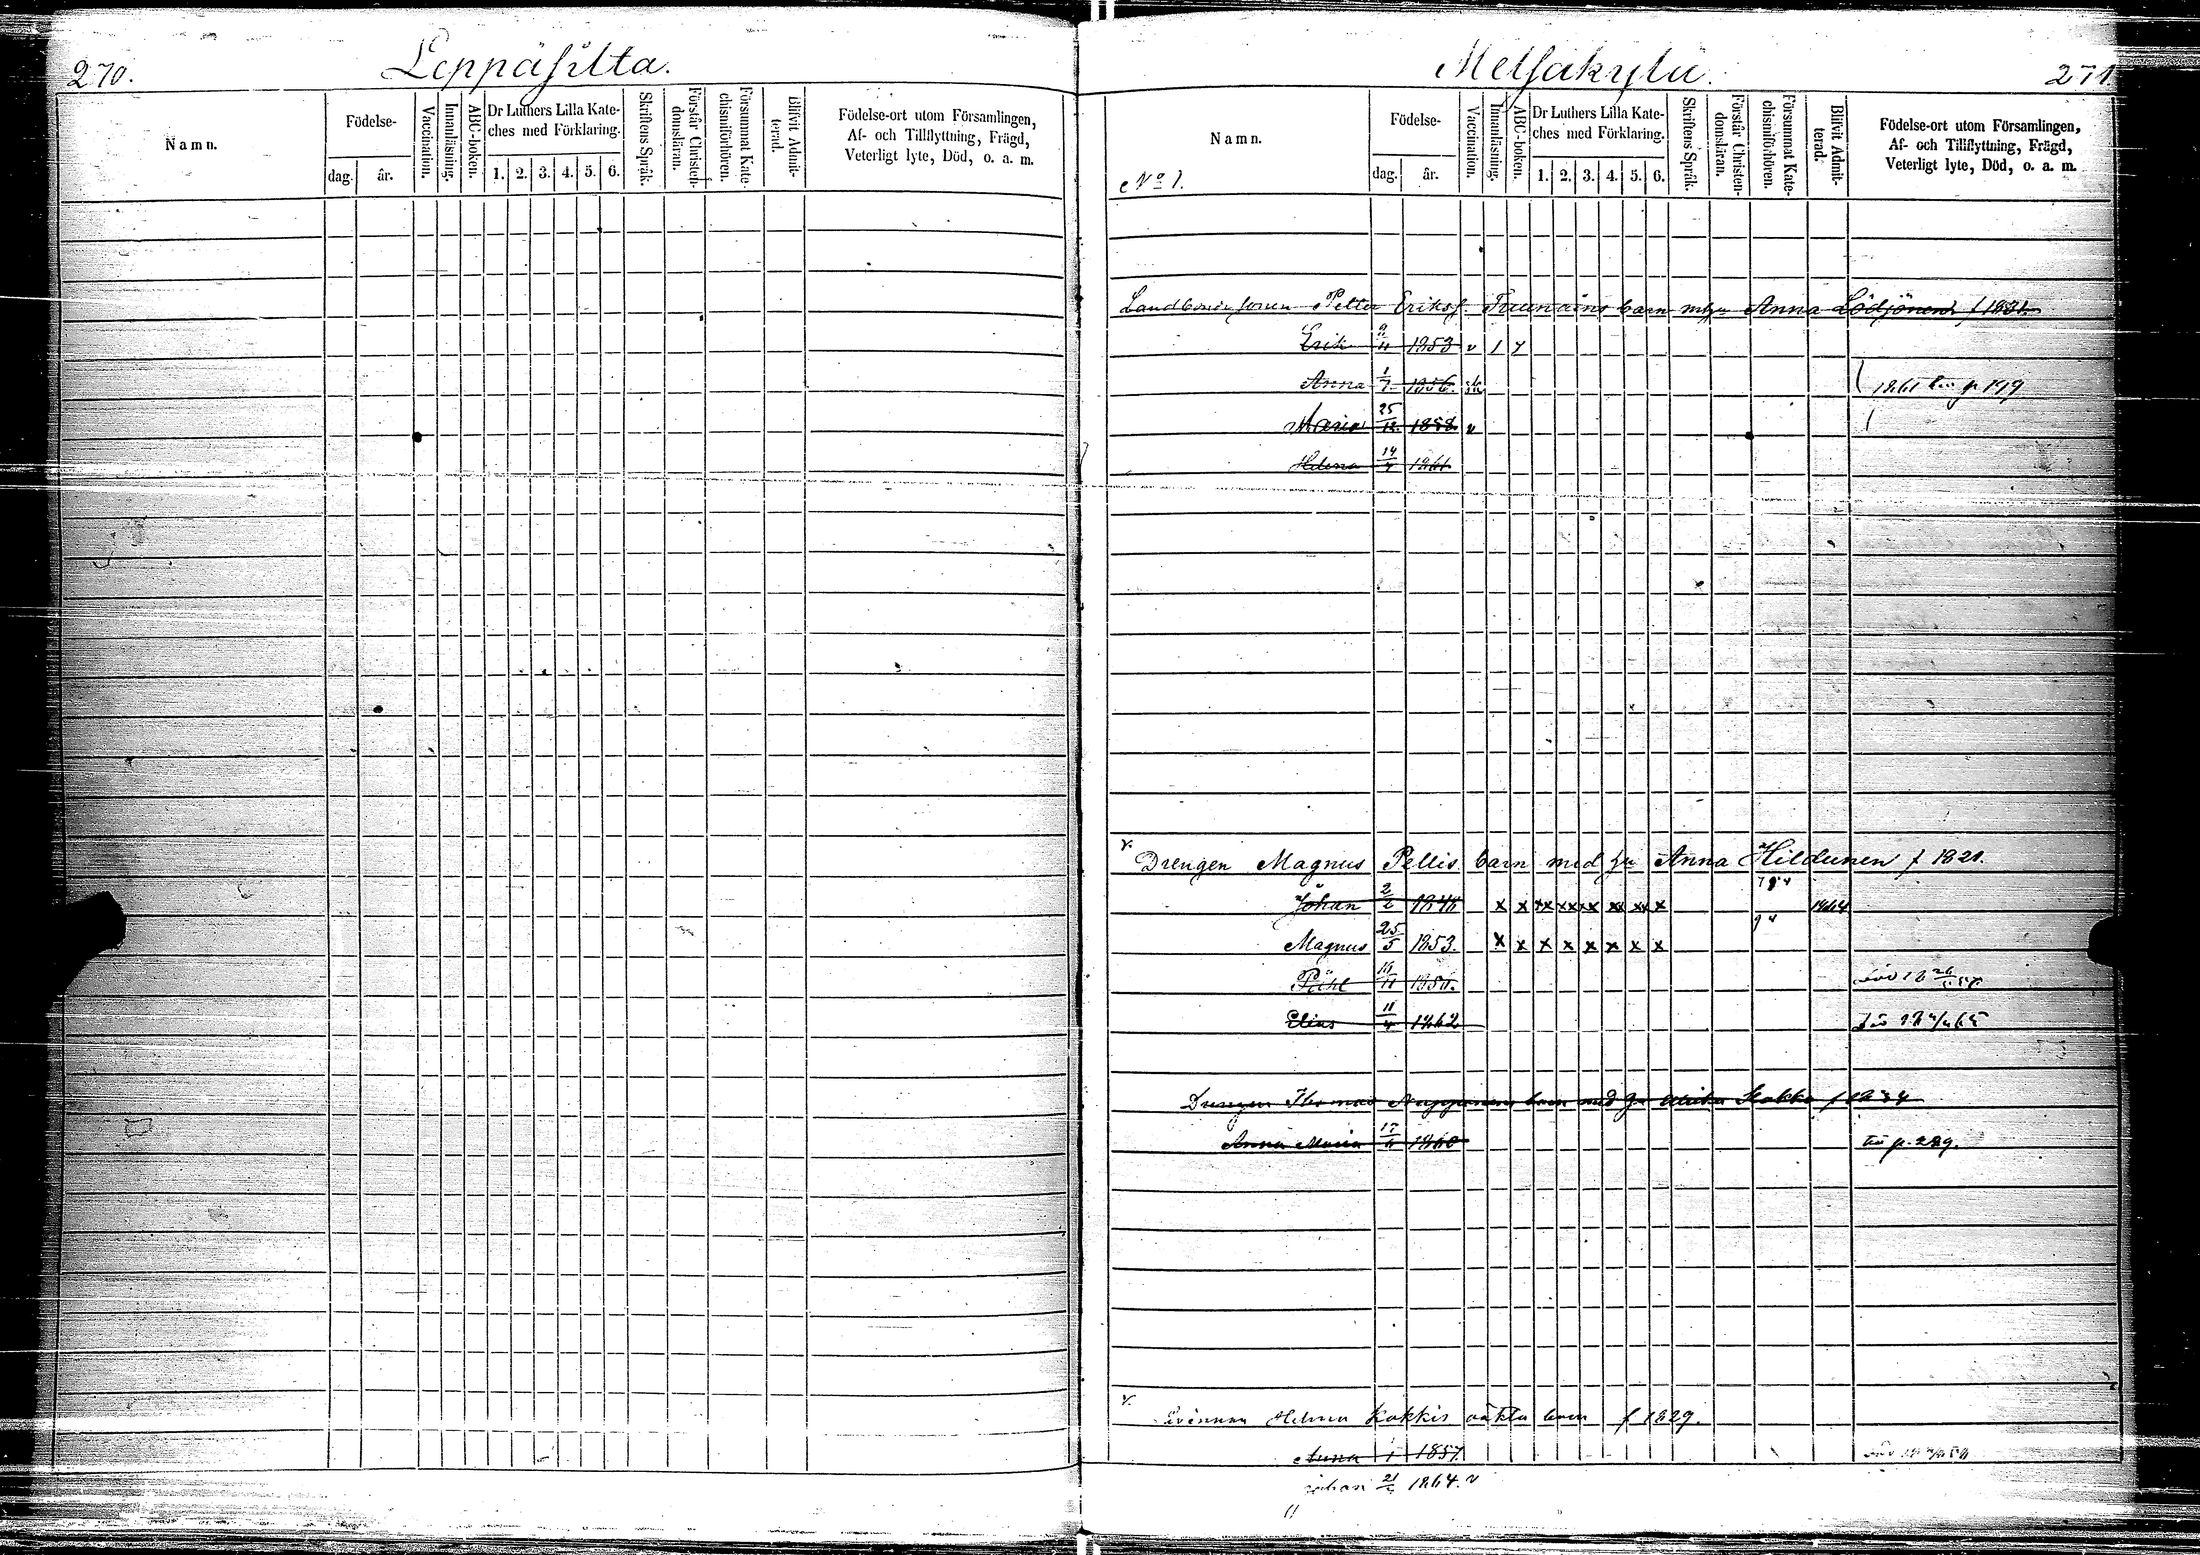 270.
Leppäsilta.
Namn.
Födelse-
dag.
år.
Vaccination.
Innanläsning.
ABC-boken.
Dr Luthers Lilla Kate-
ches med Förklaring.
1. 2. 3. 4. 5. 6.
Skriftens Språk.
Förstår Christen-
domsläran.
Försummat Kate-
chismiförhören.
Blifvit Admit-
terad.
Födelse-ort utom Församlingen,
Af- och Tillflyttning, Frägd,
Veterligt lyte, Död, o. a. m.
Metsäkylä.
271
Namn.
No 1.
Födelse-
dag.
år.
Vaccination.
Innanläsning.
ABC-boken.
Dr Luthers Lilla Kate-
ches med Förklaring.
1. 2. 3. 4. 5. 6.
Skriftens Språk.
Förstår Christen-
domsläran.
Försummat Kate-
chismiförhören.
Blifvit Admit-
terad.
Födelse-ort utom Församlingen,
Af- och Tillflyttning, Frägd,
Veterligt lyte, Död, o. a. m.
Petter Eriks. barn Anna Lödjönen f 1831.
Erik 1853 v 1
Anna 1/7 1856. 1861 p 179
Maria 25/12 1858 v
Helena 14/4 1861
v. Drengen Magnus Pellis barn med hu Anna Hildunen f 1821.
Johan 2/2 x x xx xx xx xx xx x 1864
Magnus 25/5 1853. x x x x x x x x
Påhl
Elias 11/4 1862
Drengen Thomas barn med hu Ulrika Kokko f 1834
Anna Maria 1860 p. 289.
v. Helena Kokkis oäkta barn f 1829.
Anna 1857.
Johan 1864. v